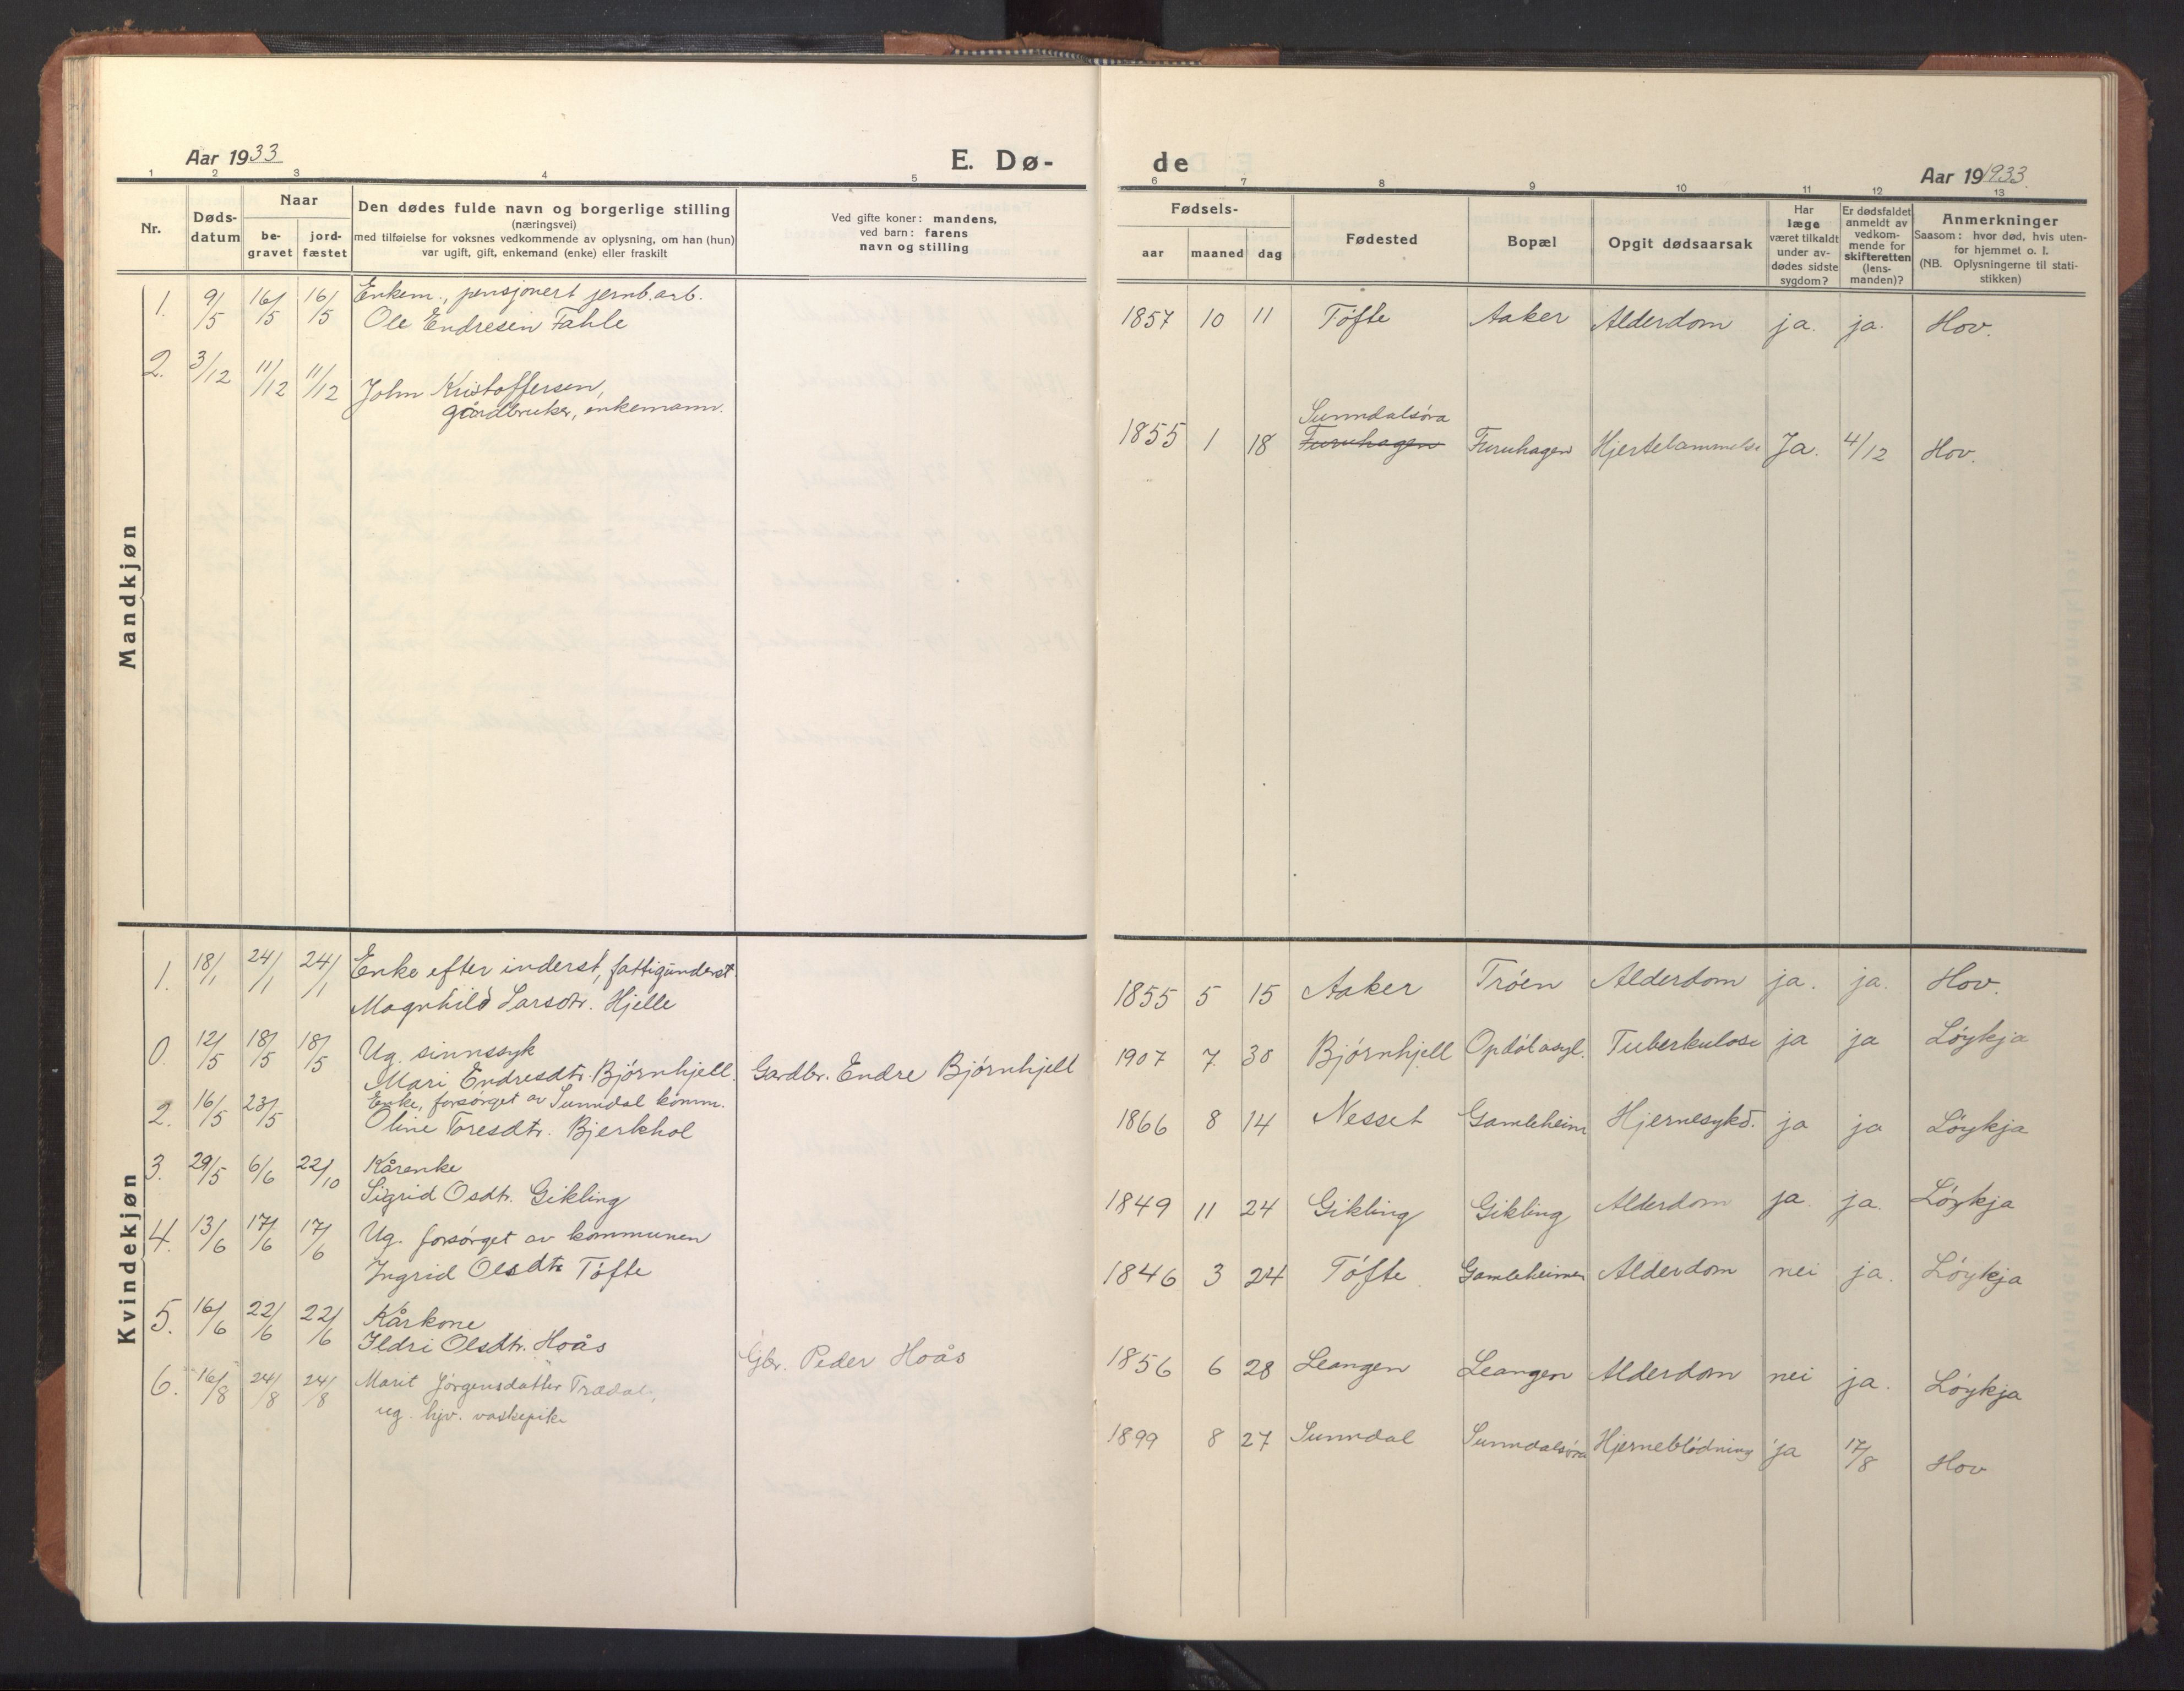 Aar 1933
E. Dø-
de
Aar 19 1933.
1 2 3 4 5 6 7 8 9 10 11 12 13
Nr.
Døds-
datum
Naar
be-
gravet
jord-
fæstet
Den dødes fulde navn og borgerlige stilling
(næringsvei)
med tilføielse for voksnes vedkommende av oplysning, om han (hun)
var ugift, gift, enkemand (enke) eller fraskilt
Ved gifte koner: mandens,
ved barn: farens
navn og stilling
Fødsels-
aar maaned dag
Fødested
Bopæl
Opgit dødsaarsak
Har
læge
været tilkaldt
under av-
dødes sidste
sygdom?
Er dødsfaldet
anmeldt av
vedkom-
mende for
skifteretten
(lens-
manden)?
Anmerkninger
Saasom: hvor død, hvis uten-
for hjemmet o. l.
(NB. Oplysningerne til stati-
stikken)
Mandkjøn
1. 9/5 16/5 16/5 Enkem., pensjonert jernb.arb.
Ole Endresen Fahle
1857 10 11 Tófte Aaker Alderdom ja. ja. Hov.
2. 3/12 11/12 11/12 John Kristoffersen,
gårdbruker, enkemann.
Sunndalsóra
1855 1 18 Furuhagen Furuhagen Hjertelammelse Ja. 4/12 Hov.
Kvindekjøn
1. 18/1 24/1 24/1 Enke efter inderst, fattigunderst.
Magnhild Larsdtr. Hjelle
1855 5 15 Aaker Tróen Alderdom ja. ja. Hov.
0. 12/5 18/5 18/5 Ug. sinnssyk
Mari Endresdtr. Bjórnhjell. Gardbr. Endre Bjórnhjell
1907 7. 30 Bjórnhjell Opdól asyl. Tuberkulose ja ja Lóykja
2. 16/5 23/5 Enke, forsórget av Sunndal komm.
Oline Toresdtr. Bjerkhol
1866 8 14 Nesset Gamleheim Hjernesykd. ja ja Lóykja
3. 29/5 6/6 22/10 Kårenke
Sigrid Osdtr. Gikling
1849 11 24 Gikling Gikling Alderdom ja. ja. Lóykja
4. 13/6 17/6 17/6 Ug. forsórget av kommunen
Ingrid Olsdtr Tófte
1846 3 24 Tófte. Gamleheimen Alderdom nei ja. Lóykja
5. 16/6 22/6 22/6 Kårkone
Ildri Olsdtr. Hoås Gbr. Peder Hoås
1856 6 28 Leangen Leangen Alderdom nei ja. Lóykja
6. 16/8 24/8 24/8 Marit Jórgensdatter Trædal,
ug. hjv. vaskepike
1899 8 27 Sunndal Sunndalsóra Hjerneblódning ja 17/8 Hov